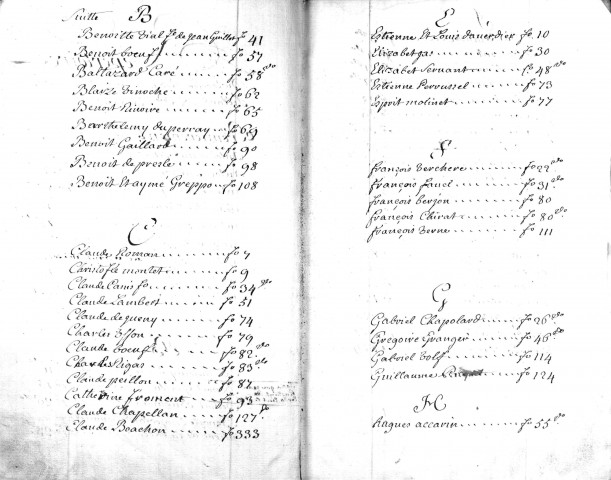 Suitte B
Benoitte vial f.e de Jean Guillet fo 41
Benoit boeuf fo 57
Baltazard Caré fo 58 vo
Blaize Binoche fo 62
Benoit Rivoire fo 65
Barthelemy duperray fo 69
Benoit Gaillard fo 90
Benoit de presle fo 98
Benoit Et aymé Greppo fo 108
C
Claude Roman fo 7
Christofle montet fo 9
Claude Canis fo 34 vo
Claude Lambert fo 51
Claude de queny fo 74
Charles fo 79
Claude boeuf fo 82 vo
Charles Rigas fo 83 vo
Claude peillon fo 87
Catherine froment fo 93
Claude Chapellan fo 127 vo
Claude Beachon fo 333
E
Estienne Et Louis dauerdier fo 10
Elizabet gas fo 30
Elizabet Servant fo 48 vo
Estienne Perrussel fo 73
Esprit molinet fo 77
F
françois Verchere fo 22 vo
françois fauel fo 31 vo
françois berjon fo 80
françois Chirat fo 80 vo
françois verne fo 111
G
Gabriel Chapolard fo 26 vo
Gregoire Granger fo 46 vo
Gabriel Volf fo 114
Guillaume fo 124
H
Hugues accarin fo 55 vo